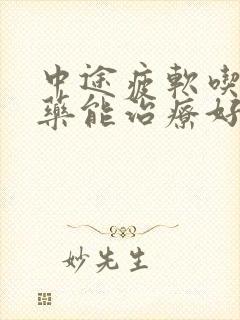 中途疲軟喫
藥能治療好
妙先生